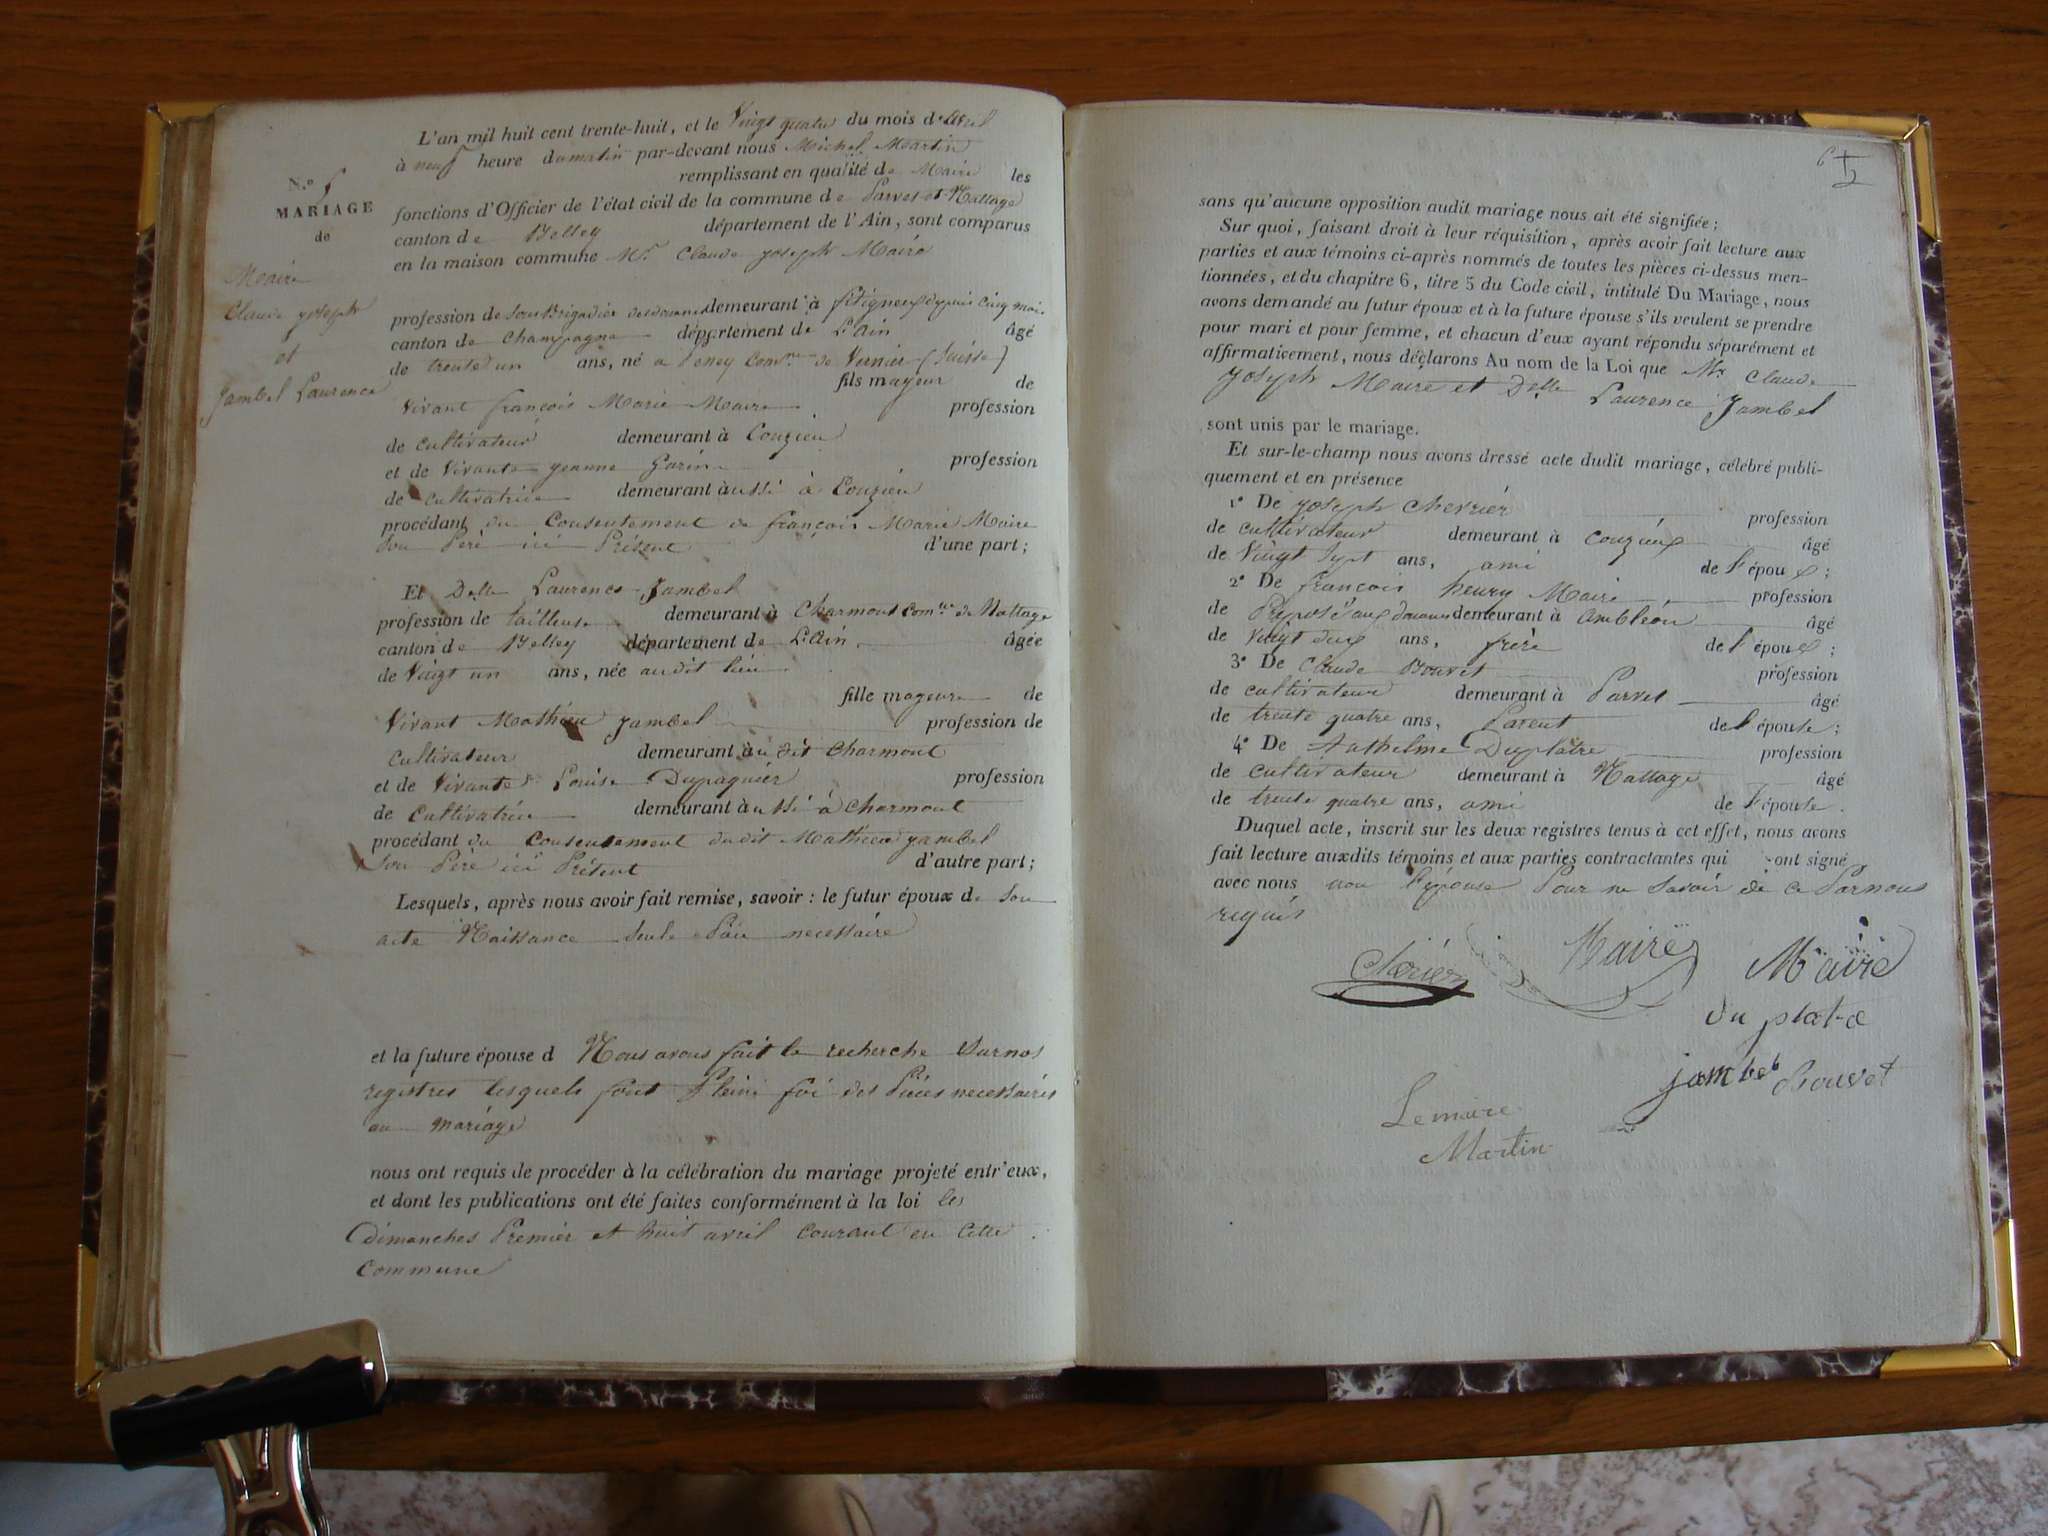 L'an mil huit cent trente-huit, et le Vingt quatre du mois d'avril
à neuf heure du matin par-devant nous Michel Martin
remplissant en qualité de Maire les
N.º
MARIAGE
de
Maire
Claude joseph
et
Jambel Laurence
fonctions d'Officier de l'état civil de la commune de Parves et Nattage
canton de Belley département de l'Ain, sont comparus
en la maison commune Mr Claude joseph Maire
profession de Sous Brigadier des douanes demeurant à fitigneux depuis cinq mois
canton de Champagne département de L'Ain âgé
de trente un ans, né a Peney Comne de Vernier (Suisse)
fils mayeur de
Vivant françois Marie Maire profession
de cultivateur demeurant à Couzieu
et de Vivante jeanne Garin profession
de cultivatrice demeurant àussi à Couzieu
procédant du Consentement de françois Marie Maire
Son Père ici Présent d'une part;
Et Delle Laurence Jambel
profession de tailleuse demeurant à Charmont comne de Nattage
canton de Belley département de L'Ain âgée
de Vingt un ans, née au dit lieu
fille mageure de
Vivant Mathieu jambel profession de
cultivateur demeurant àu dit Charmont
et de Vivante Louise Dupaquier profession
de Cultivatrice demeurant àussi à Charmont
procédant du Consentement du dit Mathieu jambel
Son Père ici Présent d'autre part;
Lesquels, après nous avoir fait remise, savoir : le futur époux de Son
acte Naissance Seule Pièce necessaire
et la future épouse d Nous avons fait la recherche Sur nos
registres lesquels font Pleine foi des Pièces necessaires
au mariage
nous ont requis de procéder à la célébration du mariage projeté entr'eux,
et dont les publications ont été faites conformément à la loi les
dimanches Premier et huit avril courant en cette
commune
6
sans qu'aucune opposition audit mariage nous ait été signifiée;
Sur quoi, faisant droit à leur réquisition, après avoir fait lecture aux
parties et aux témoins ci-après nommés de toutes les pièces ci-dessus men-
tionnées, et du chapitre 6, titre 5 du Code civil, intitulé Du Mariage, nous
avons demandé au futur époux et à la future épouse s'ils veulent se prendre
pour mari et pour femme, et chacun d'eux ayant répondu séparément et
affirmativement, nous déclarons Au nom de la Loi que Mr Claude
joseph Maire et Delle Laurence Jambel
sont unis par le mariage.
Et sur-le-champ nous avons dressé acte dudit mariage, célébré publi-
quement et en présence
1º De joseph Chevrier profession
de cultivateur demeurant à couzieux âgé
de Vingt Sept ans, ami de l'époux;
2º De françois henry Maire profession
de Préposé aux douanes demeurant à ambléon âgé
de vingt deux ans, frère de l'époux;
3º De Claude Bouvet profession
de cultivateur demeurant à Parves âgé
de trente quatre ans, Parent de l'épouse;
4º De Anthelme Duplâtre profession
de cultivateur demeurant à Nattage âgé
de trente quatre ans, ami de l'épouse.
Duquel acte, inscrit sur les deux registres tenus à cet effet, nous avons
fait lecture auxdits témoins et aux parties contractantes qui ont signé
avec nous non l'épouse Pour ne Savoir de ce Par nous
requis
Maire Maire
du platre
jambel Bouvet
Le maire
Martin